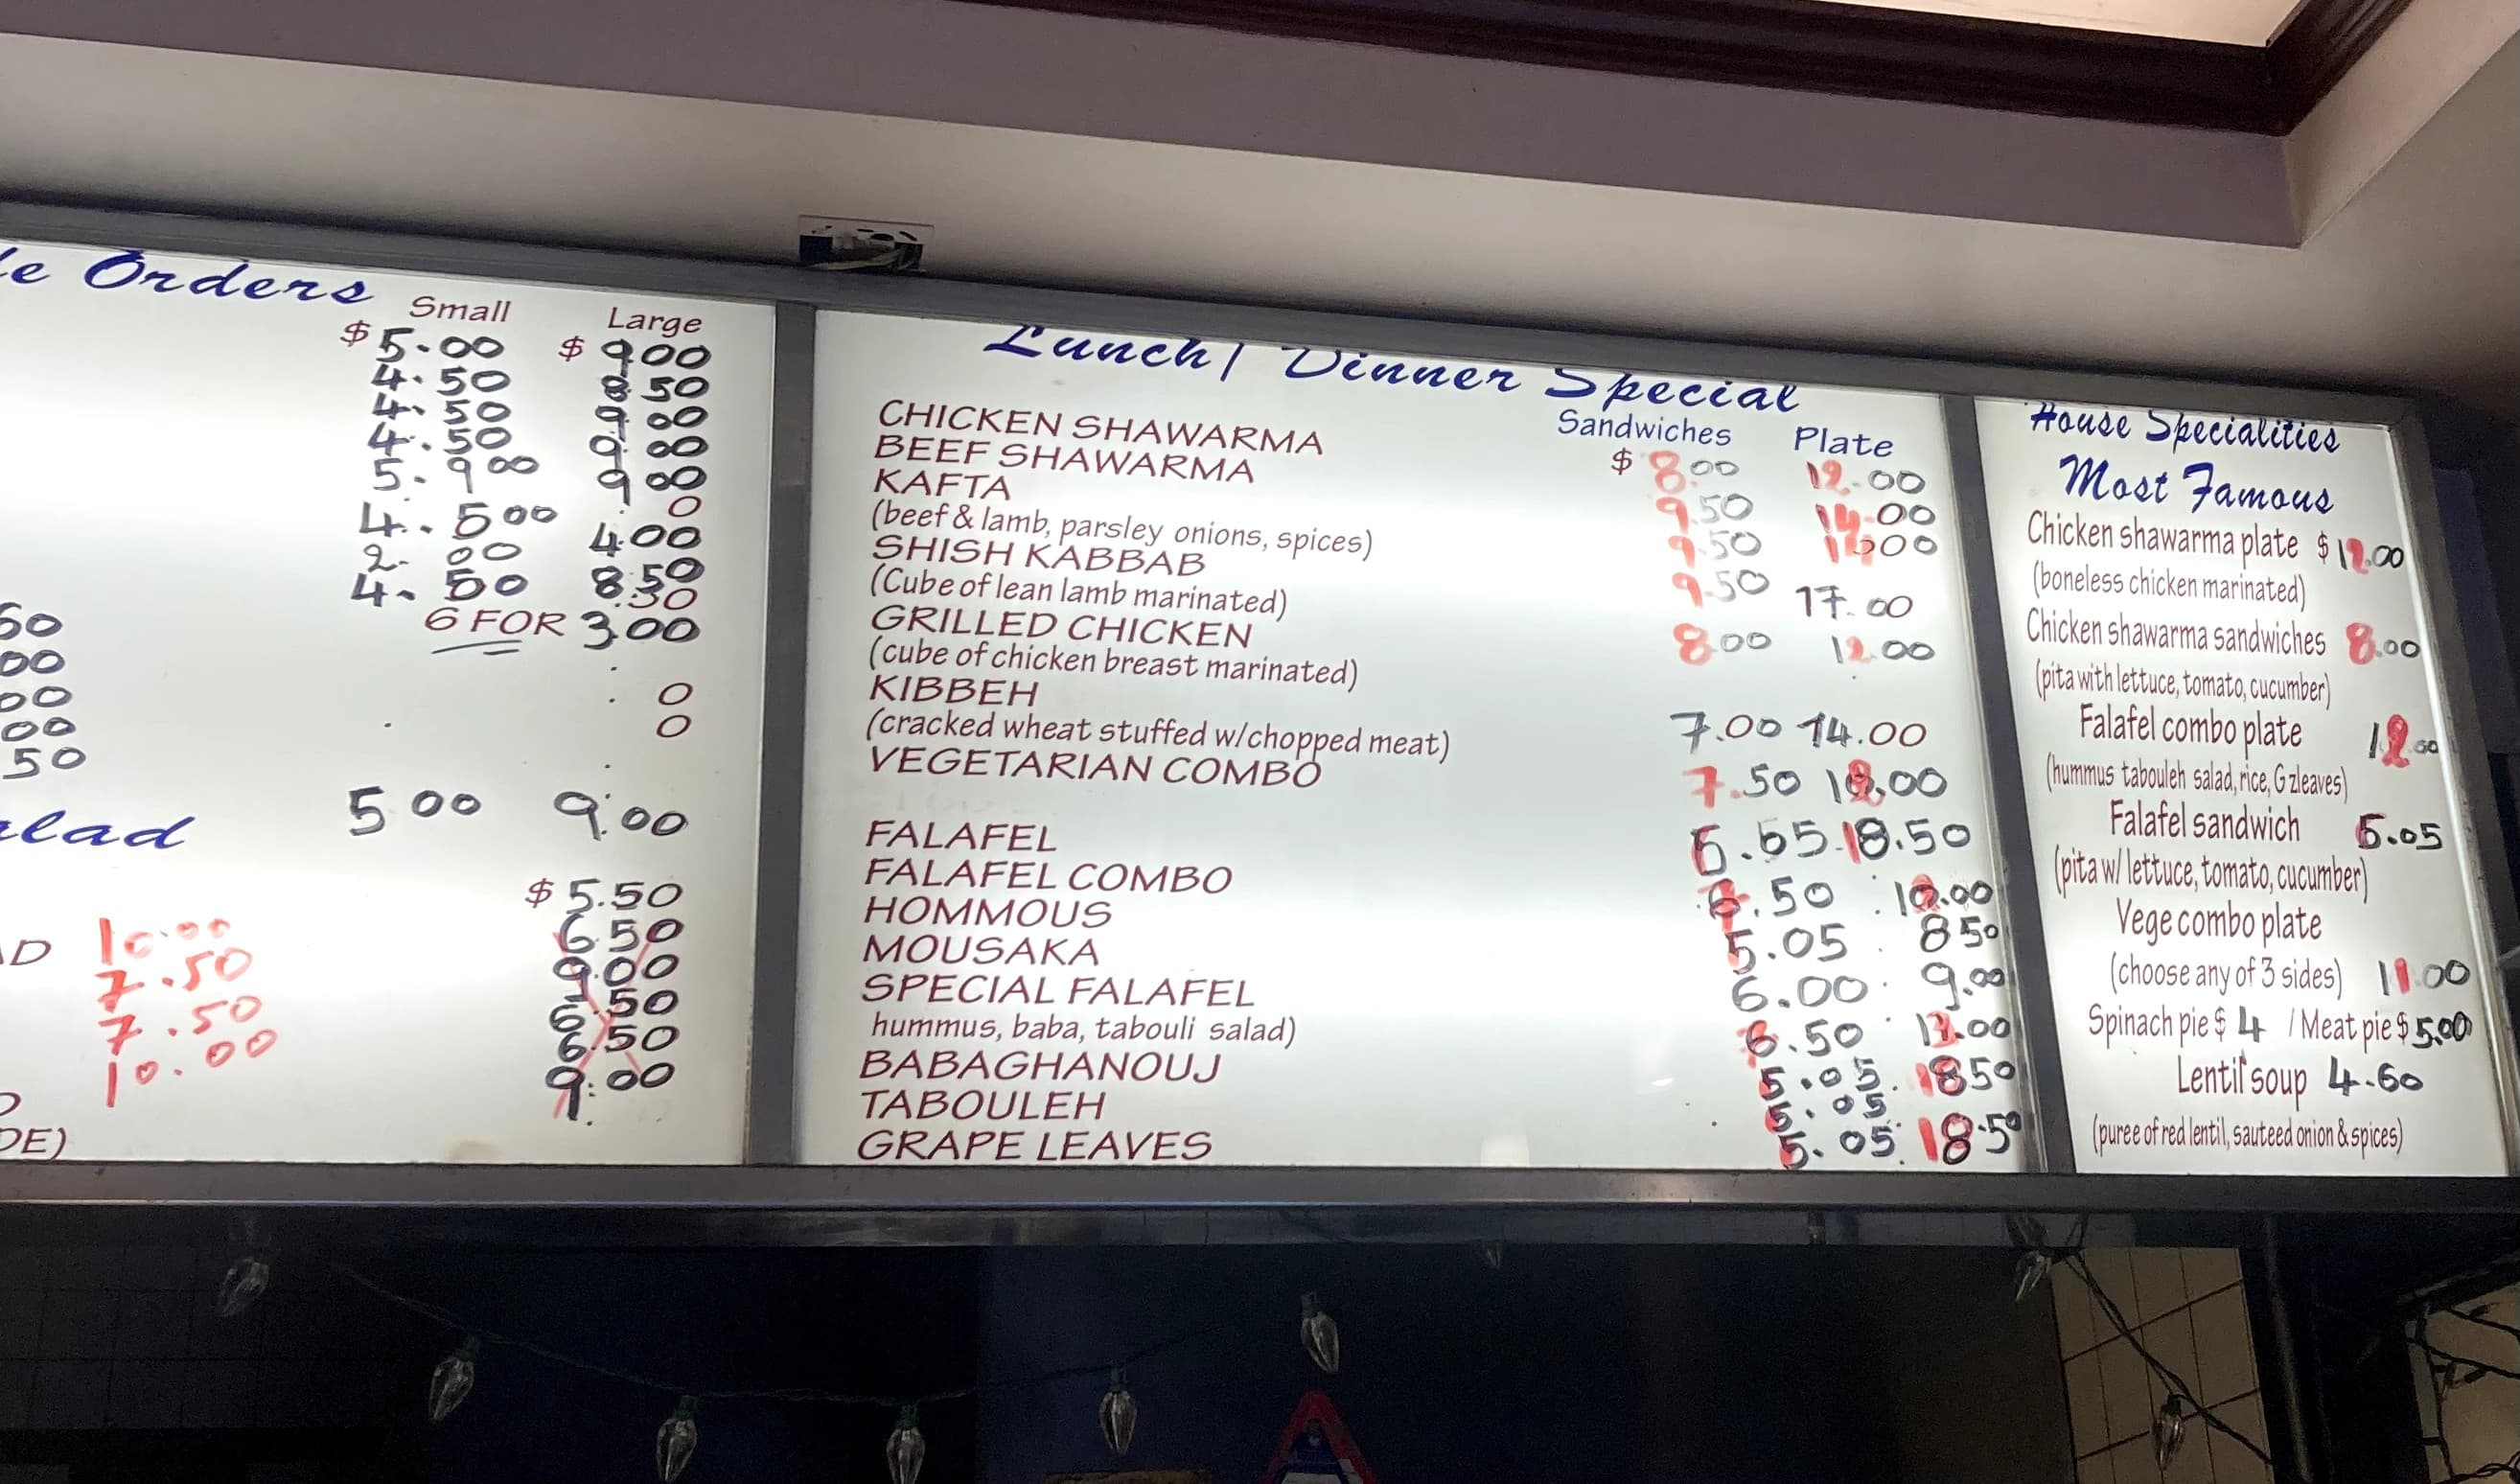 Orders
Small Large
$ 5.00 $ 9.00
4.50 8.50
4.50 9.00
4.50 9.00
5.9 00 9.00
0
4.. 5 00
2.00 4.00
4.50 8.50
.50
6 FOR 3.00
50
00
00
00
50
0
0
5 00 9.00
$ 5.50
6.50
10.00 9.00
7.50 6.50
7.50 6.50
10.00 9.00
DE)
Lunch/ Dinner Special
Sandwiches Plate
CHICKEN SHAWARMA $ 8.00 12.00
BEEF SHAWARMA 9.50 14.00
KAFTA 9.50 14.00
(beef & lamb, parsley onions, spices)
SHISH KABBAB 9.50 17.00
(Cube of lean lamb marinated)
GRILLED CHICKEN 8.00 12.00
(cube of chicken breast marinated)
KIBBEH 7.00 14.00
(cracked wheat stuffed w/chopped meat)
VEGETARIAN COMBO 7.50 .00
FALAFEL 18.50
FALAFEL COMBO .50 .00
HOMMOUS 5.05 8 50
MOUSAKA 6.00 9.00
SPECIAL FALAFEL 6.50 .00
hummus, baba, tabouli salad)
BABAGHANOUJ 5.05 18 50
TABOULEH 5.05
GRAPE LEAVES 5.05 18.50
House Specialities
Most Famous
Chicken shawarma plate $ 12.00
(boneless chicken marinated)
Chicken shawarma sandwiches 8.00
(pita with lettuce, tomato, cucumber)
Falafel combo plate 12.00
(hummus tabouleh salad, rice, G zleaves)
Falafel sandwich 5.05
(pita w/ lettuce, tomato, cucumber)
Vege combo plate
(choose any of 3 sides) 11.00
Spinach pie $ 4 / Meat pie $ 5.00
Lentil soup 4.60
(puree of red lentil, sauteed onion & spices)